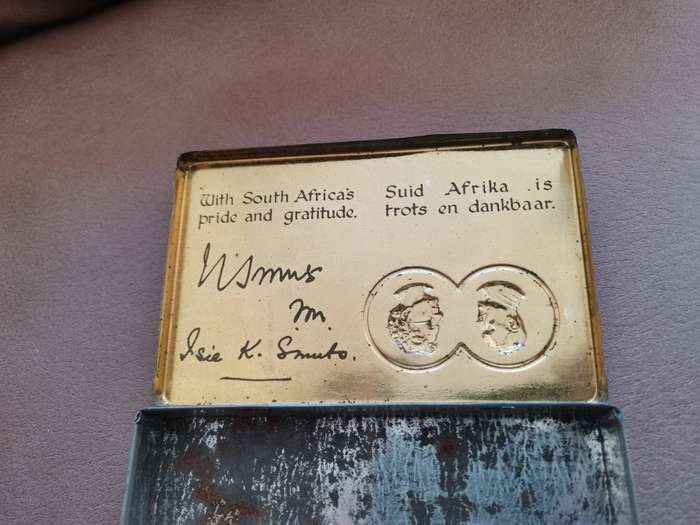 With South Africa's
pride and gratitude.
Suid Afrika is
trots en dankbaar.
Isie K. Smuts.